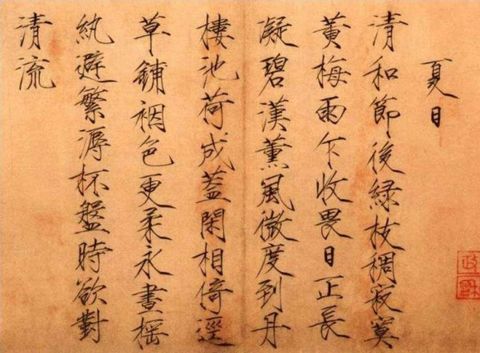 夏日
清和節後綠枝稠寂寞
黃梅雨乍收畏日正長
凝碧漢薰風微度到丹
棲池荷成蓋閑相倚逕
草鋪裀色更柔永晝搖
紈避繁溽杯盤時欲對
清流